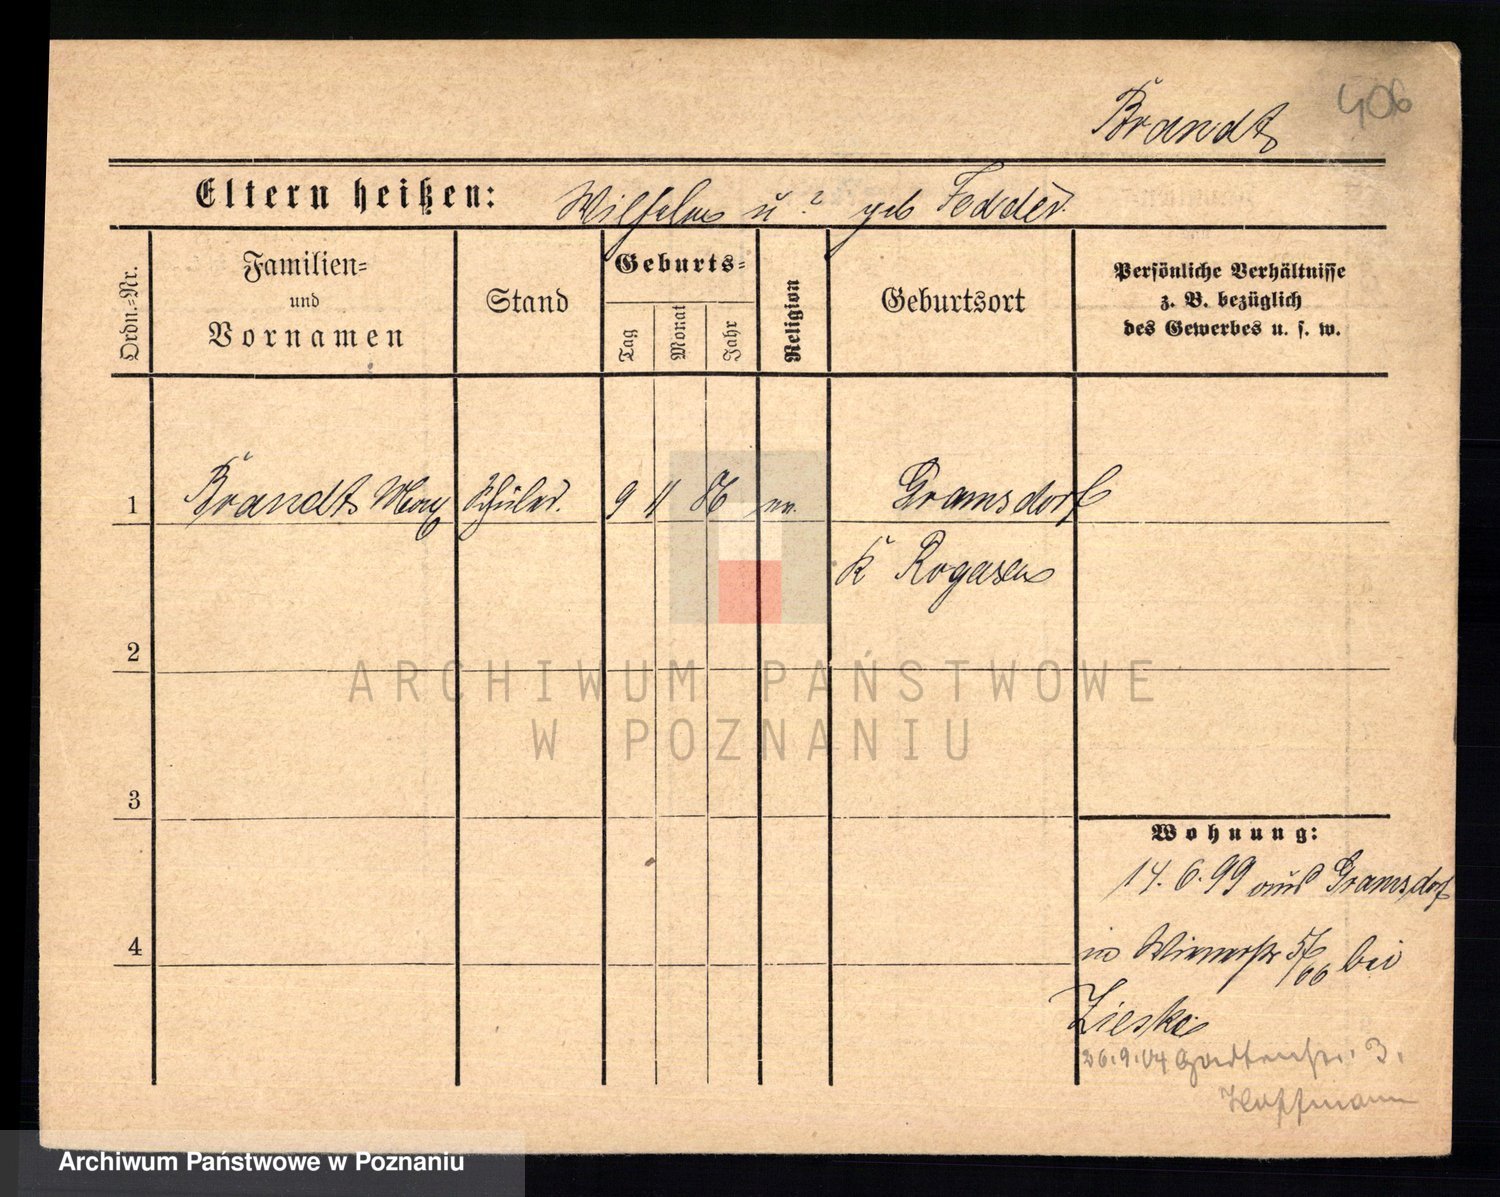 406
Brandt
Eltern heißen: Wilhelm u ? geb Fedder
Ordn.=Nr.
Familien=
und
Vornamen
Stand
Geburts=
Tag
Monat
Jahr
Religion
Geburtsort
Persönliche Verhältnisse
z. B. bezüglich
des Gewerbes u. s. w.
1 Brandt Max Schüler. 9 11 86 ev. Gramsdorf
K Rogasen
2
3
4
Wohnung:
14.6.99 aus Gramsdorf
in Wienerstr 5 bei
Zieske
26.9.04 Gartenstr. 3.
Hoffmann
ARCHIWUM PAŃSTWOWE
W POZNANIU
Archiwum Państwowe w Poznaniu